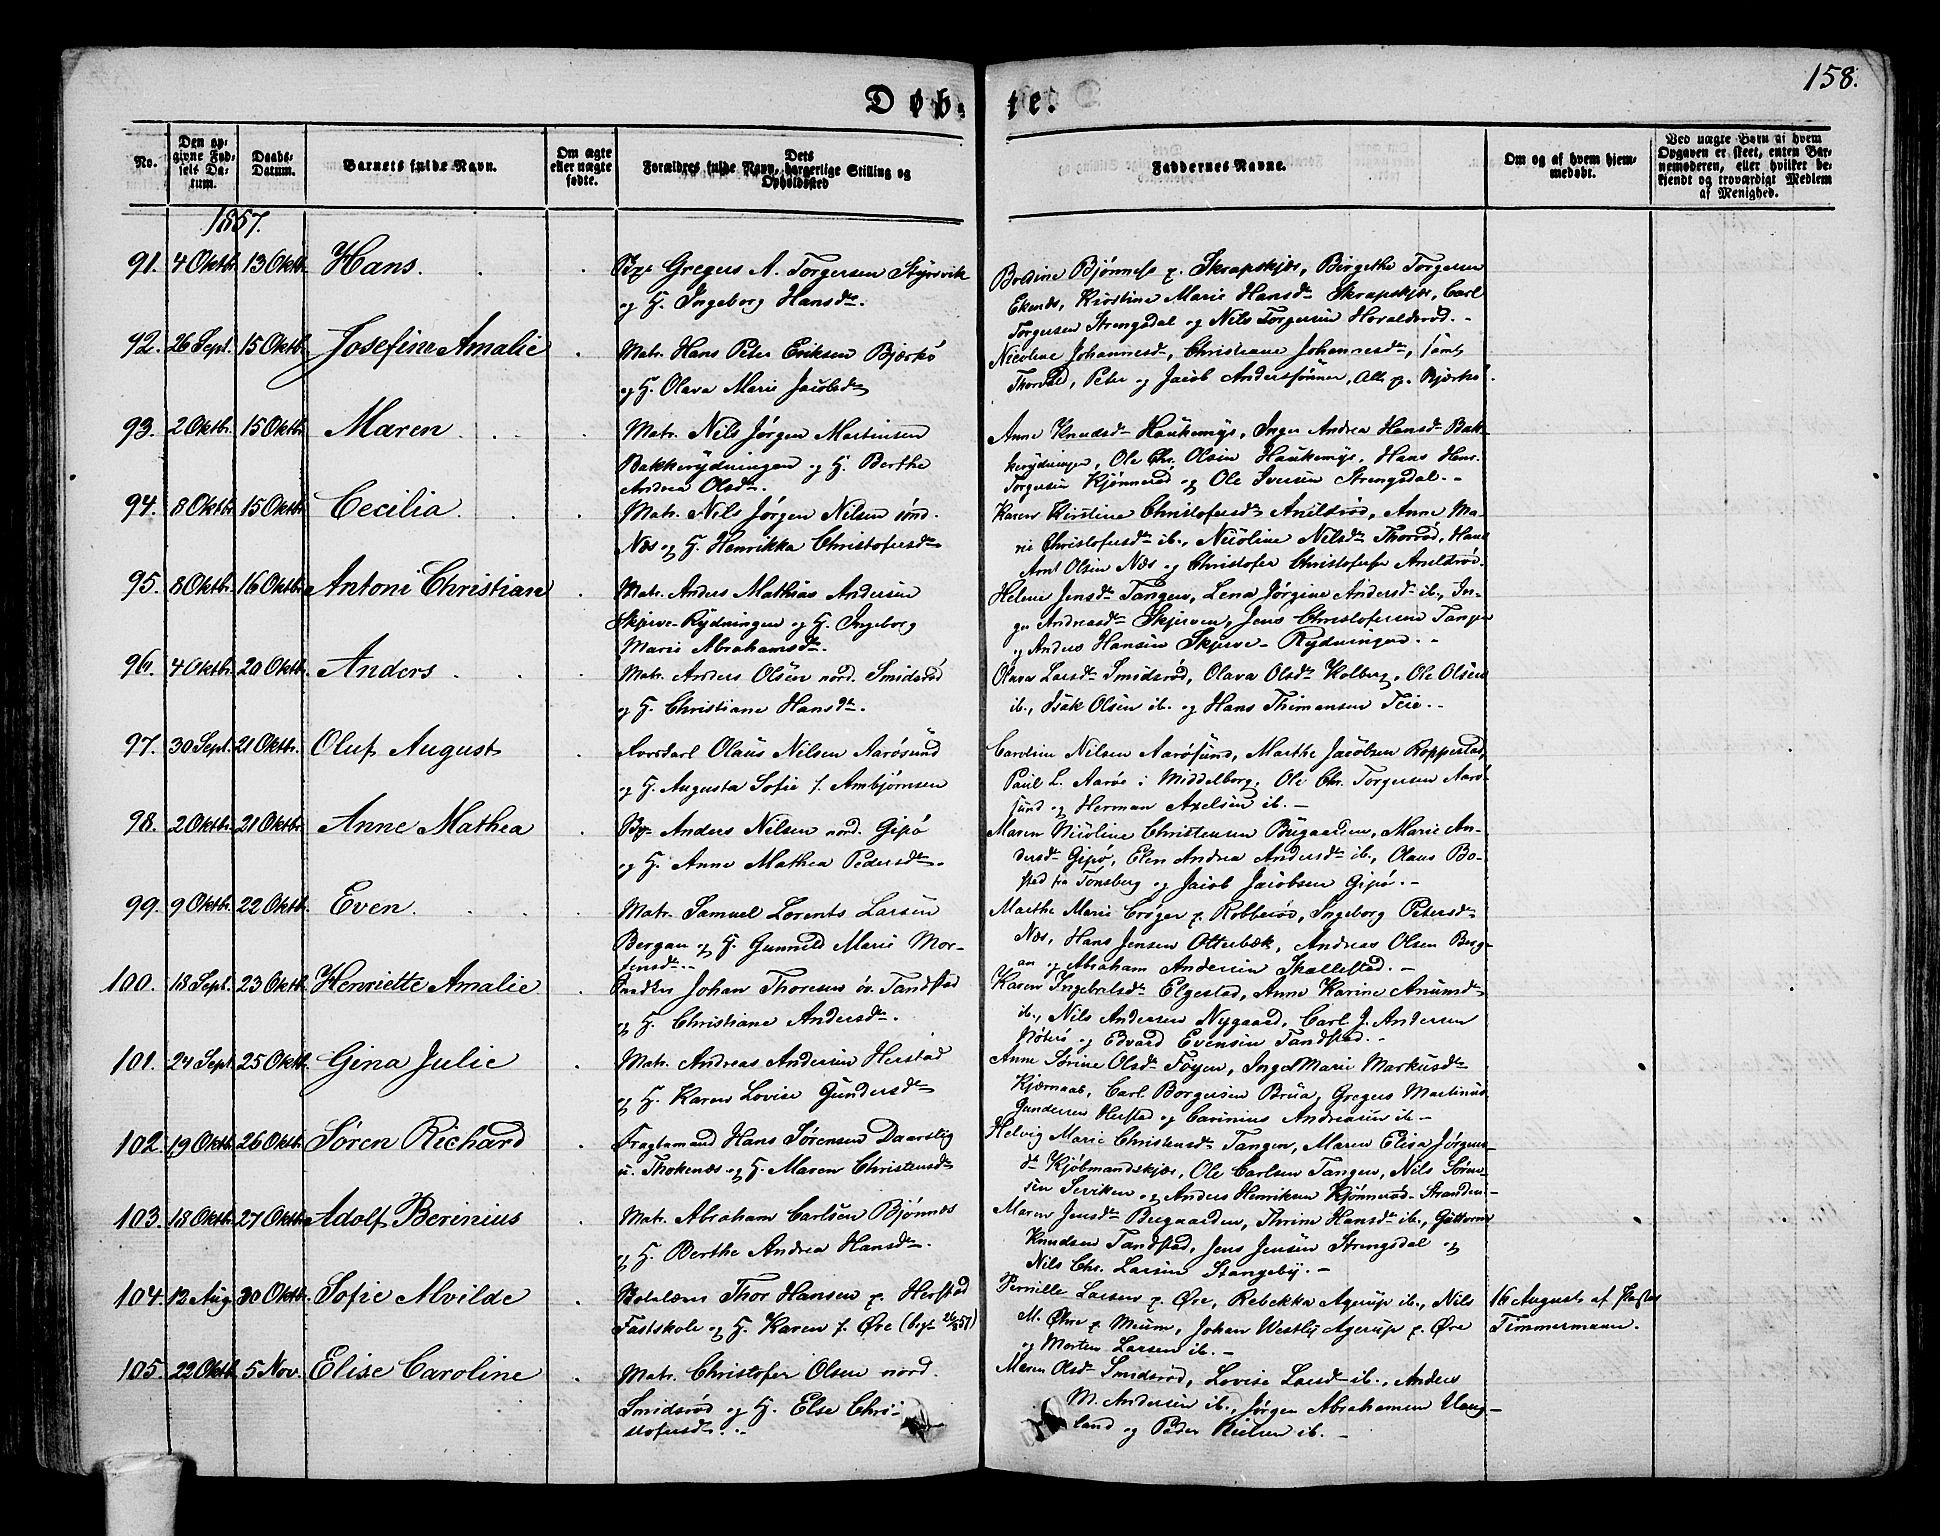 158.
Døb- te.
No.
Den op-
givne Fød-
sels Da-
tum.
Daabs-
Datum.
Barnets fulde Navn.
Om ægte
eller uægte
fødte.
Dets
Forældres fulde Navn, borgerlige Stilling og
Opholdssted
Faddernes Navne.
Om og af hvem hjem-
medøbt.
Ved uægte Barn af hvem
Opgaven er skeet, enten Bar-
nemoderen, eller hvilket be-
kjendt og troværdigt Medlem
af Menighed.
1857.
91. 4 Oktbr. 13 Oktb. Hans.
Gregers A. Torgersen Styrsvik
og H. Ingeborg Hansdtr.
Bredine Bjønnes p. Skrapskjær, Birgethe Torgersen
Ekenes, Kirstine Marie Hansdtr Skrapskjær, Carl
Torgersen Strengsdal og Nils Torgersen Horaldsrød.
92. 26 Sept. 15 Oktb. Josefine Amalie
Matr. Hans Peter Eriksen Bjærkø
og H. Olava Marie Jacobsdtr
Nicoline Johannesdtr, Christiane Johannesdtr, samt
Thorvald, Peter og Jacob Anderssønner, Alle p. Bjærkø.
93. 2 Oktbr. 15 Oktbr. Maren
Matr. Nils Jørgen Martinsen
Bakkerydningen og H. Berthe
Andrea Olsdtr.
Anne Knudsdtr Haukemyr, Inger Andrea Hansdtr Bak-
kerydningen, Ole Chr. Olsen Haukemyr, Hans Henr.
Torgersen Kjønnerød og Ole Iversen Strengsdal.
94. 8 Oktbr. 15 Oktbr. Cecilia
Matr. Nils Jørgen Nilsen sønd.
Næs og H. Henrikka Christofersdtr
Karen Kirstine Christofersdtr Arildsrød, Anne Ma-
rie Christofersdtr ib., Nicoline Nilsdtr Thorrød, Hans
Arnt Olsen Næs og Christofer Christofersen Arildsrød.
95. 8 Oktbr. 16 Oktbr. Antoni Christian
Matr. Anders Mathias Andersen
Skjerve-Rydningen og H. Ingeborg
Marie Abrahamsdtr.
Helene Jensdtr Tangen, Lena Jørgine Andersdtr ib., In-
ger Andreasdtr Skjerven, Jens Christofersen Tangen
og Anders Hansen Skjerve-Rydningen.
96. 4 Oktbr. 20 Oktbr. Anders
Matr. Anders Olsen nord. Smidsrød
og H. Christiane Hansdtr.
Olava Larsdtr Smidsrød, Olava Olsdtr Kolberg, Ole Olsen
ib., Isak Olsen ib. og Hans Thimansen Teie.
97. 30 Sept. 21 Oktbr. Oluf August
Olaus Nilsen Aarøsund
og H. Augusta Sofie f. Ambjørnsen
Caroline Nilsen Aarøsund, Marthe Jacobsen Ropperstad,
Paul L. Aarøe i Middelborg, Ole Chr. Torgersen Aarø-
sund og Herman Axelsen ib.
98. 2 Oktbr. 21 Oktbr. Anne Mathea
Anders Nilsen nord. Gipø
og H. Anne Mathea Pedersdtr.
Maren Nicoline Christensen Bugaarden, Marie An-
dersdtr Gipø, Elen Andrea Andersdtr ib., Olaus Bo-
stad fra Tønsberg og Jacob Jacobsen Gipø.
99. 9 Oktbr. 22 Oktbr. Even
Matr. Samuel Lorents Larsen
Bergan og H. Gunnild Marie Mor-
tensdtr.
Marthe Marie Crøger p. Robberød, Ingeborg Petersdtr
Næs, Hans Jensen Otterbæk, Andreas Olsen Berg-
an og Abraham Andersen Skallestad.
100. 18 Sept. 23 Oktb. Henriette Amalie
Snedker Johan Thoresen øv. Tandstad
og H. Christiane Andersdtr.
Karen Ingebretsdtr Elgestad, Anne Karine Anunsdtr
ib., Nils Andersen Nygaard, Carl J. Andersen
Nøterø og Edvard Evensen Tandstad.
101. 24 Sept. 25 Oktb. Gina Julie
Matr. Andreas Andersen Herstad
og H. Karen Lovise Gundersdtr
Anne Sørine Olsdtr Føyen, Inger Marie Markusdtr
Kjærnaas, Carl Borgersen Brua, Gregers Martinus
Gundersen Herstad og Carinius Andreasen ib.
102. 19 Oktbr. 26 Oktbr. Søren Richard
Fragtemand Hans Sørensen Daarslig
u. Thokenæs og H. Maren Christensdtr
Helvig Marie Christensdtr Tangen, Maren Elisa Jørgens-
dtr Kjøbmandskjær, Ole Carlsen Tangen, Nils Søren-
sen Seviken og Anders Henriksen Kjønnerød-Stranden.
103. 18 Oktbr. 27 Oktbr. Adolf Berinius
Matr. Abraham Carlsen Bjønnes
og H. Berthe Andrea Hansdtr.
Maren Jensdtr Bugaarden, Thrine Hansdtr ib., Guttorm
Knudsen Tandstad, Jens Jensen Strengsdal og
Nils Chr. Larsen Stangeby.
104. 12 Aug. 30 Oktbr. Sofie Alvilde
Thor Hansen p. Herstad
Fastskole og H. Karen f. Øre
Pernille Larsen p. Øre, Rebekka Agerup ib., Nils
M. Øhre p. Meum, Johan Westly Agerup p. Øre
og Morten Larsen ib.
16 August af
Timmermann.
105. 22 Oktb. 5 Nov. Elise Caroline
Matr. Christofer Olsen nord.
Smidsrød og H. Else Chri-
stofersdtr.
Maren Olsdtr Smidsrød, Lovise Larsdtr ib., Anders
M. Andersen ib., Jørgen Abrahamsen Haug-
land og Peder Nielsen ib.